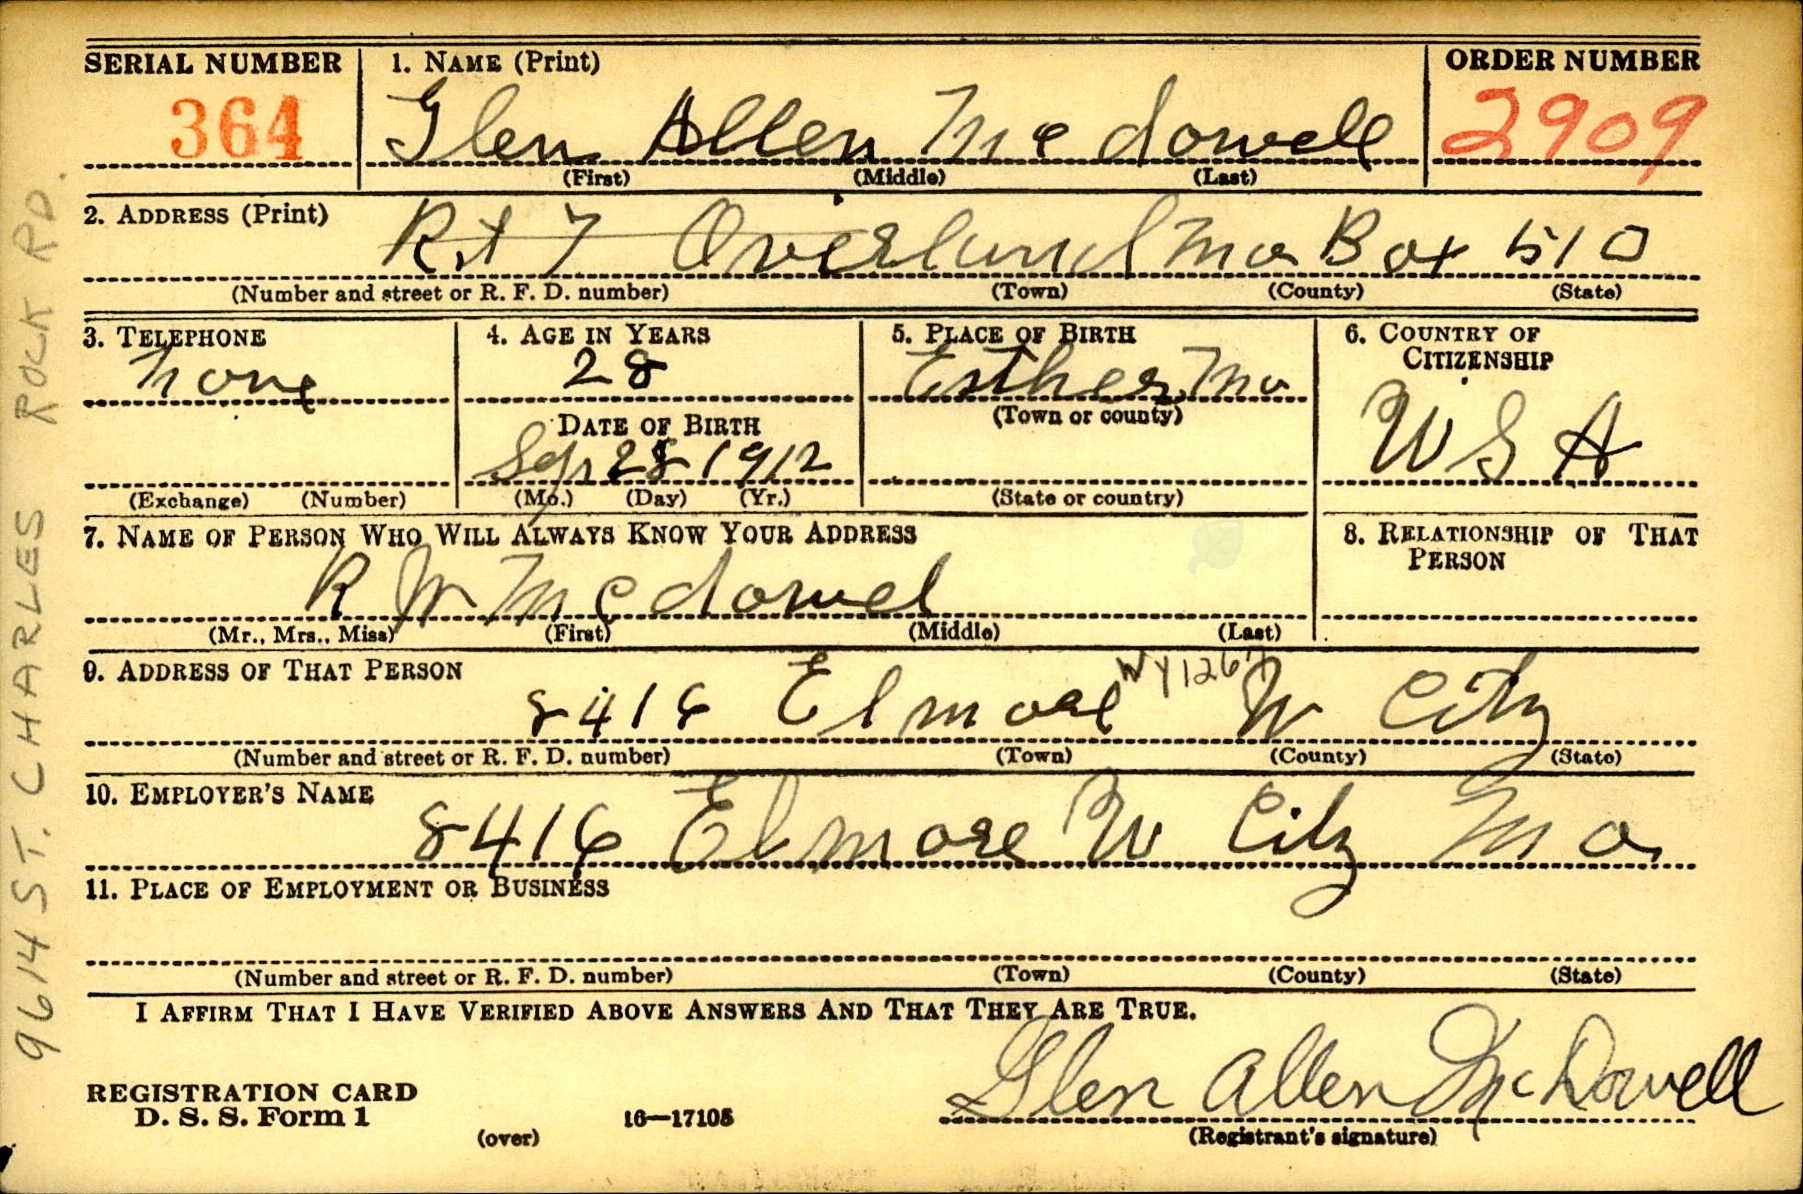 SERIAL NUMBER 1. NAME (Print) ORDER NUMBER
364 Glen Allen Mc dowell 2909
(First) (Middle) (Last)
2. ADDRESS (Print) Rt 7 Overland Mo Box 510
(Number and street or R. F. D. number) (Town) (County) (State)
3. TELEPHONE 4. AGE IN YEARS 5. PLACE OF BIRTH 6. COUNTRY OF CITIZENSHIP
none 28 Esther, Mo
(Town or county)
DATE OF BIRTH USA
Sep 28 1912
(Exchange) (Number) (Mo.) (Day) (Yr.) (State or country)
7. NAME OF PERSON WHO WILL ALWAYS KNOW YOUR ADDRESS 8. RELATIONSHIP OF THAT PERSON
R W Mcdowel
(Mr., Mrs., Miss) (First) (Middle) (Last)
9. ADDRESS OF THAT PERSON WY1267
8416 Elmore W City
(Number and street or R. F. D. number) (Town) (County) (State)
10. EMPLOYER'S NAME
8416 Elmore W City Mo
11. PLACE OF EMPLOYMENT OR BUSINESS
(Number and street or R. F. D. number) (Town) (County) (State)
I AFFIRM THAT I HAVE VERIFIED ABOVE ANSWERS AND THAT THEY ARE TRUE.
REGISTRATION CARD Glen Allen McDowell
D. S. S. Form 1 16—17105
(over) (Registrant's signature)
9614 ST. CHARLES ROCK RD.